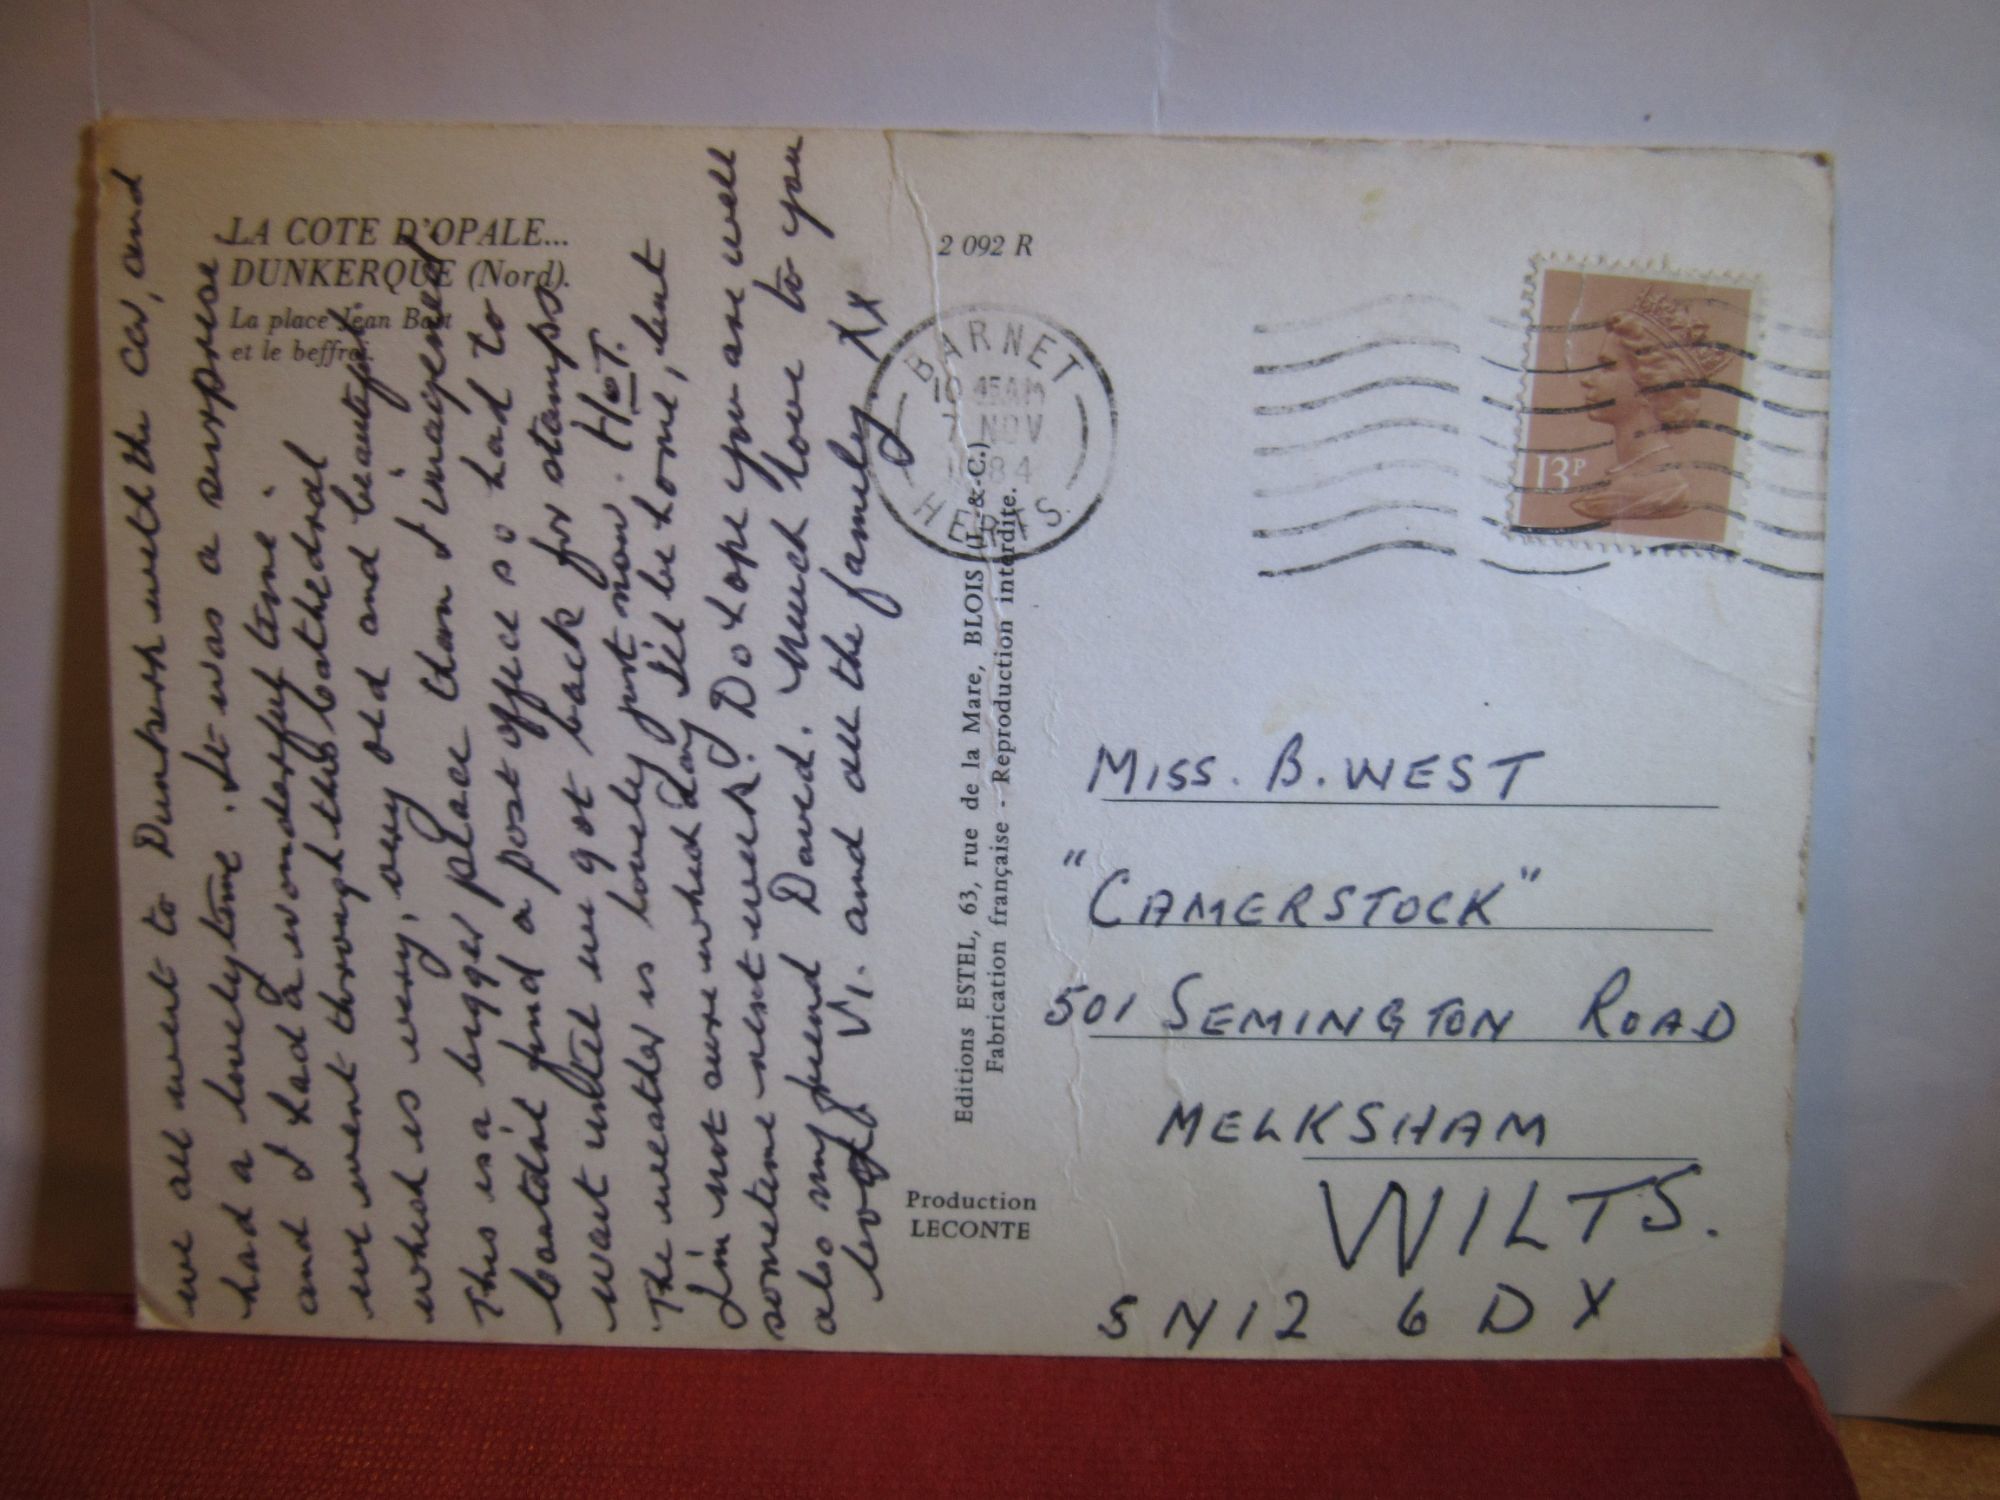 LA COTE D'OPALE...
DUNKERQUE (Nord).
La place Jean Bart
et le beffroi.
2 092 R
BARNET
10 45AM
7 NOV
1984
HERTS.
13P
we all went to Dunkirk with the car, and
had a lovely time. It was a surprise
and I had a wonderful time.
we went through this Cathedral
which is very, very old and beautiful
This is a bigger place than I imagened
couldn't find a post office so had to
wait until we got back for stamps
The weather is lovely just now. HOT.
I'm not sure which day I'll be home, but
sometime next week. Do hope you are well
also my friend David. Much love to you
love Vi. and all the family xx
Editions ESTEL, 63, rue de la Mare, BLOIS (L.-&-C.)
Fabrication française - Reproduction interdite.
Production
LECONTE
MISS. B. WEST
"CAMERSTOCK"
501 SEMINGTON ROAD
MELKSHAM
WILTS.
SN12 6DX